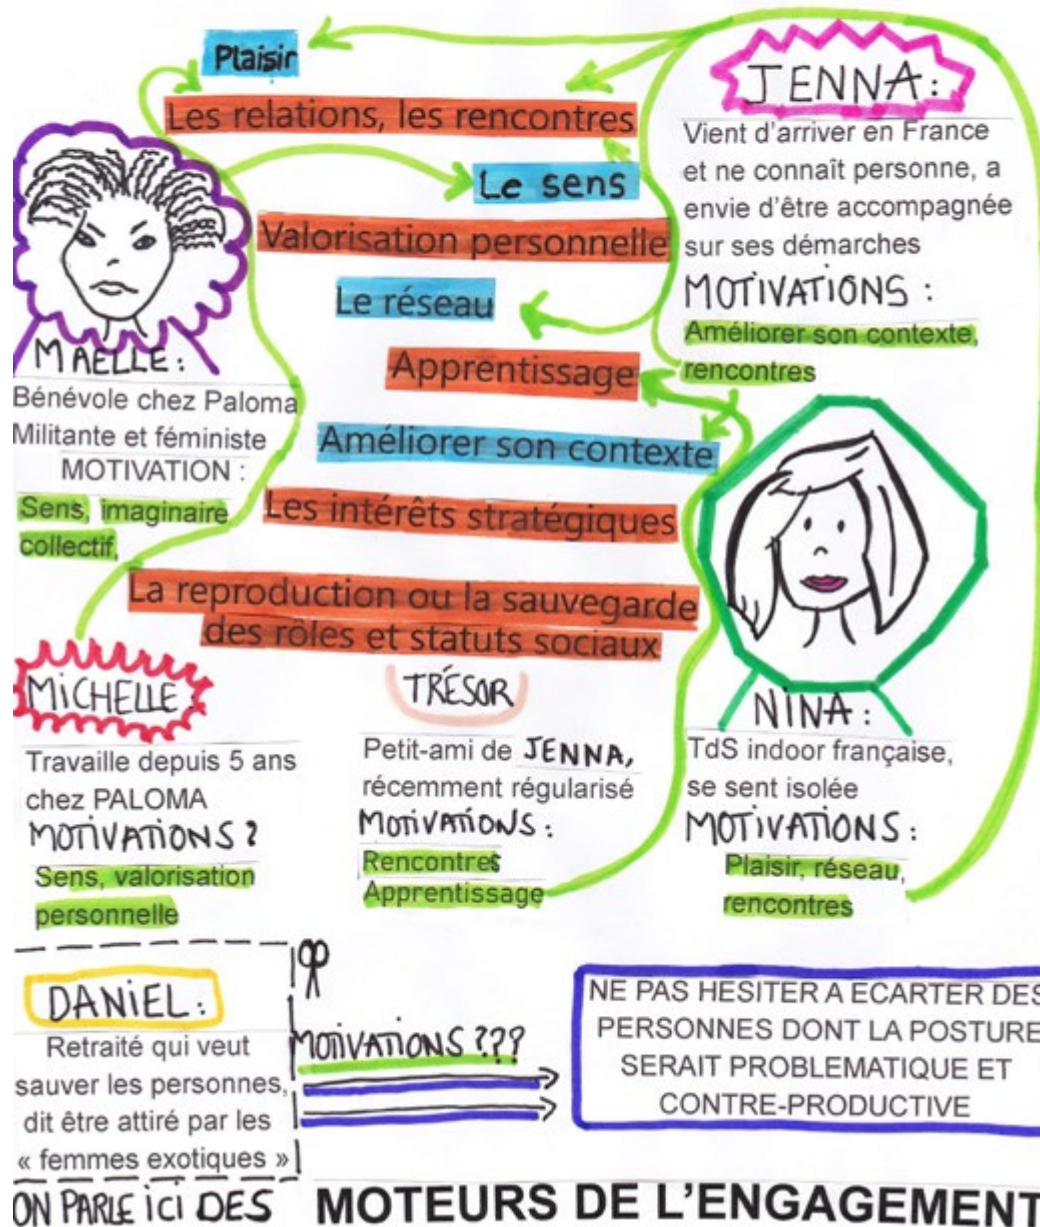 Plaisir
Les relations, les rencontres
Le sens
Valorisation personnelle
Le réseau
Apprentissage
Améliorer son contexte
Les intérêts stratégiques
La reproduction ou la sauvegarde
des rôles et statuts sociaux
JENNA:
Vient d'arriver en France
et ne connaît personne, a
envie d'être accompagnée
sur ses démarches
MOTIVATIONS :
Améliorer son contexte,
rencontres
MAELLE:
Bénévole chez Paloma
Militante et féministe
MOTIVATION :
Sens, imaginaire
collectif,
MICHELLE:
Travaille depuis 5 ans
chez PALOMA
MOTIVATIONS ?
Sens, valorisation
personnelle
TRÉSOR
Petit-ami de JENNA,
récemment régularisé
MOTIVATIONS:
Rencontres
Apprentissage
NINA:
TdS indoor française,
se sent isolée
MOTIVATIONS:
Plaisir, réseau,
rencontres
DANIEL:
Retraité qui veut
sauver les personnes,
dit être attiré par les
« femmes exotiques »
MOTIVATIONS ???
NE PAS HESITER A ECARTER DES
PERSONNES DONT LA POSTURE
SERAIT PROBLEMATIQUE ET
CONTRE-PRODUCTIVE
ON PARLE ICI DES MOTEURS DE L'ENGAGEMENT